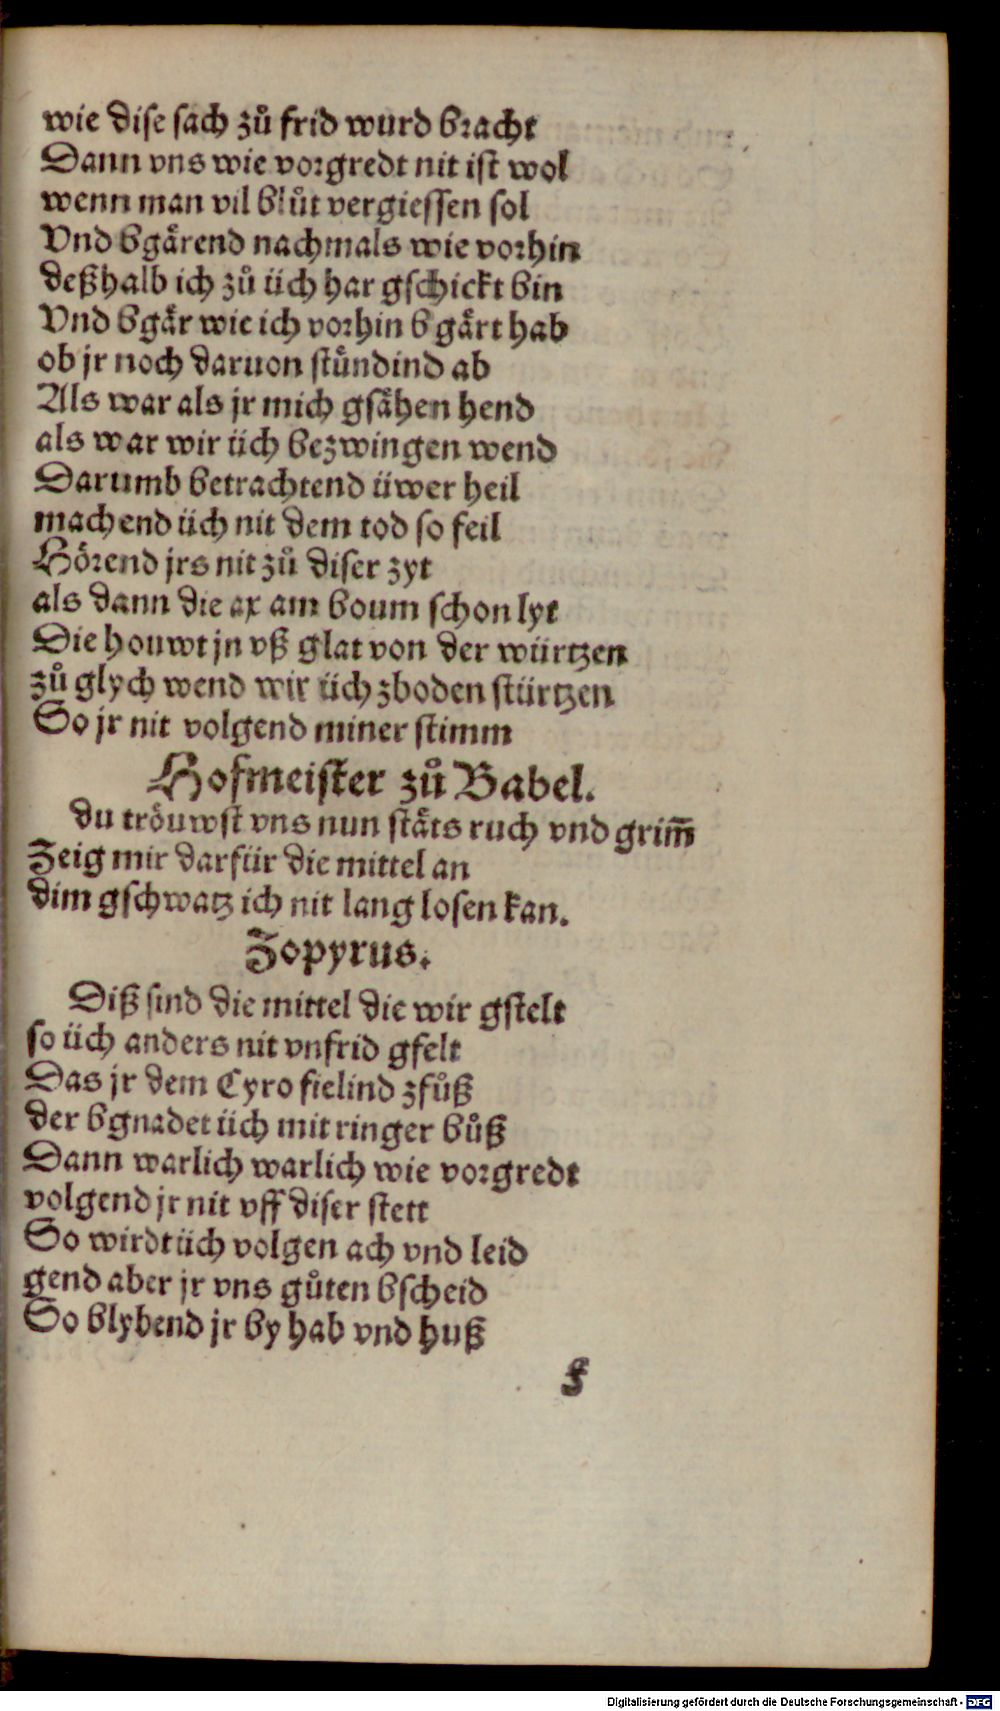 wie dise sach zů frid wurd bracht
Dann vns wie vorgredt nit ist wol
wenn man vil blůt vergiessen sol
Vnd bgärend nachmals wie vorhin
deßhalb ich zů üch har gschickt bin
Vnd bgär wie ich vorhin bgärt hab
ob jr noch daruon stündind ab
Als war als jr mich gsähen hend
als war wir üch bezwingen wend
Darumb betrachtend üwer heil
machend üch nit dem tod so feil
Hörend jrs nit zů diser zyt
als dann die ax am boum schon lyt
Die houwt jn vß glat von der würtzen
zů glych wend wir üch zboden stürtzen
So jr nit volgend miner stimm
Hofmeister zů Babel.
du tröuwst vns nun stäts ruch vnd grim̅
Zeig mir darfür die mittel an
dim gschwatz ich nit lang losen kan.
Zopyrus.
Diß sind die mittel die wir gstelt
so üch anders nit vnfrid gfelt
Das jr dem Cyro fielind zfůß
der bgnadet üch mit ringer bůß
Dann warlich warlich wie vorgredt
volgend jr nit vff diser stett
So wirdt üch volgen ach vnd leid
gend aber jr vns gůten bscheid
So blybend jr by hab vnd huß
Digitalisierung gefördert durch die Deutsche Forschungsgemeinschaft - DFG